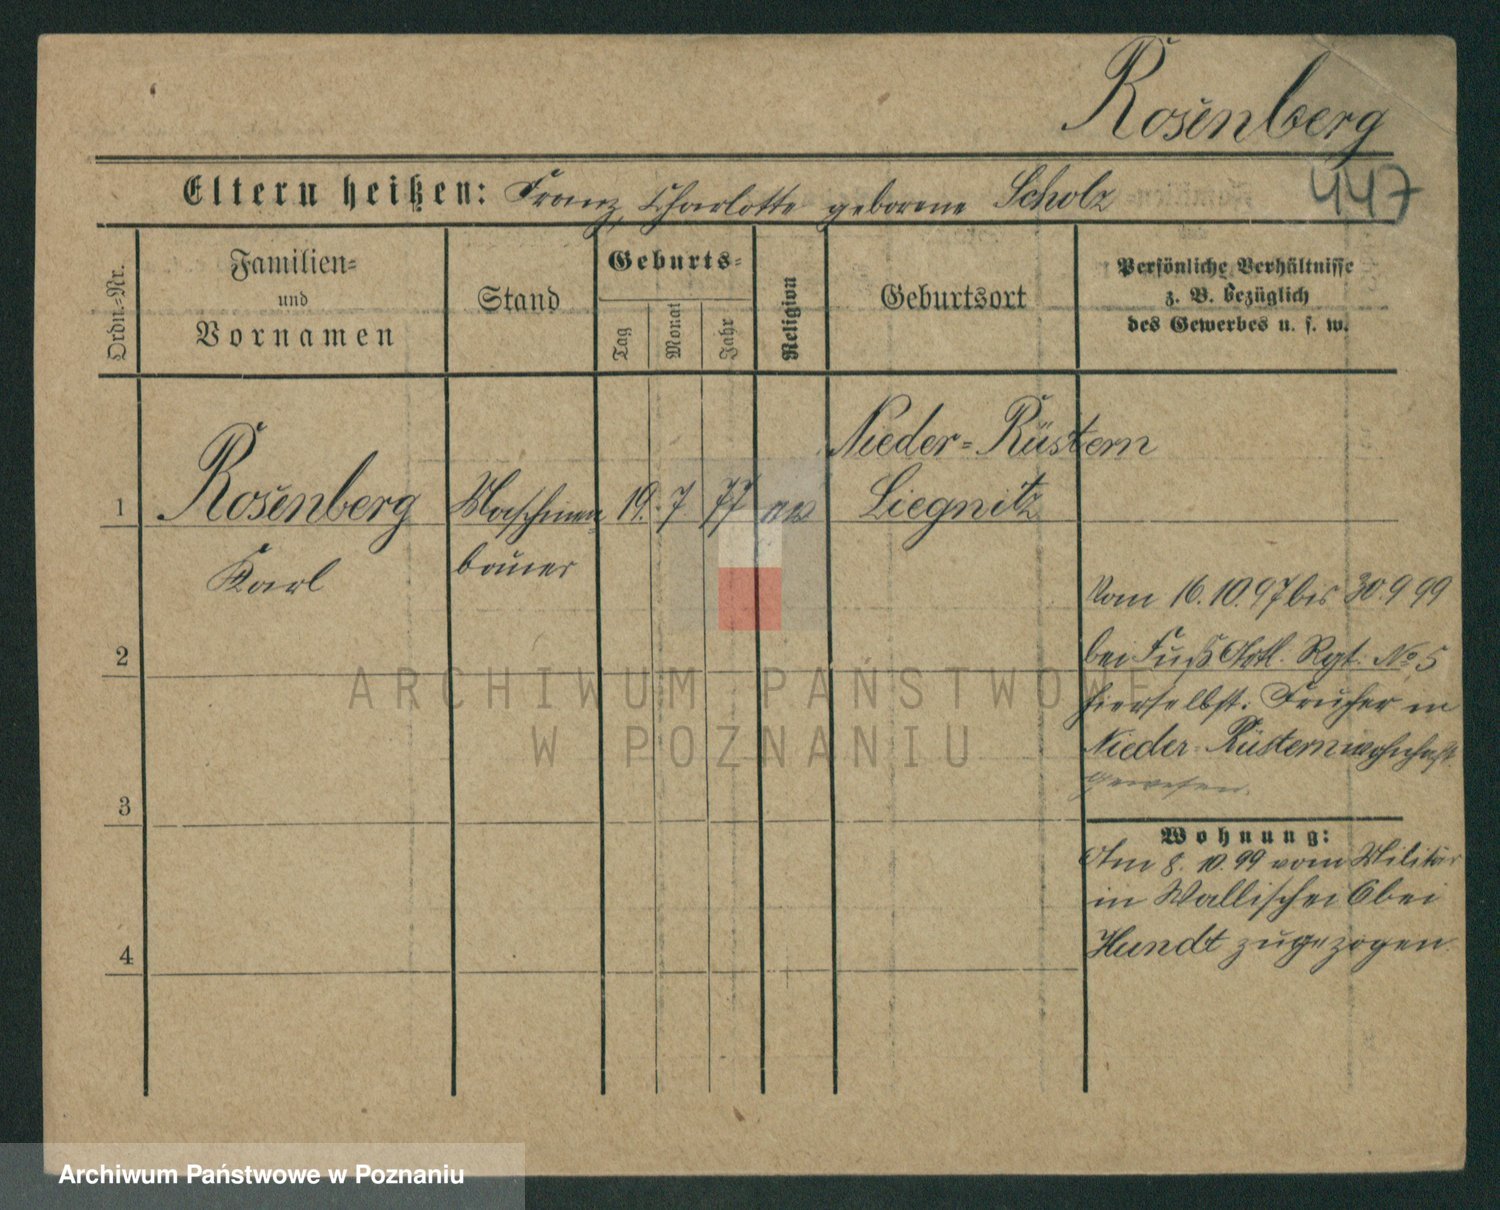 Rosenberg
447
Eltern heißen: Franz, Charlotte geborene Scholz
Ordn.-Nr.
Familien-
und
Vornamen
Stand
Geburts-
Tag
Monat
Jahr
Religion
Geburtsort
Persönliche Verhältnisse
z. B. bezüglich
des Gewerbes u. s. w.
Nieder-Rüstern
1 Rosenberg Maschinen- 19. 7 77 ev Liegnitz
Karl bauer
Vom 16.10.97 bis 30.9.99
2
bei Fuß Artl. Rgt. No 5
hierselbst. Früher in
Nieder-Rüstern wohnhaft
gewesen.
3
Wohnung:
Am 8. 10. 99 vom Militär
in Wallischei 6 bei
Hundt zugezogen.
4
ARCHIWUM PAŃSTWOWE
W POZNANIU
Archiwum Państwowe w Poznaniu